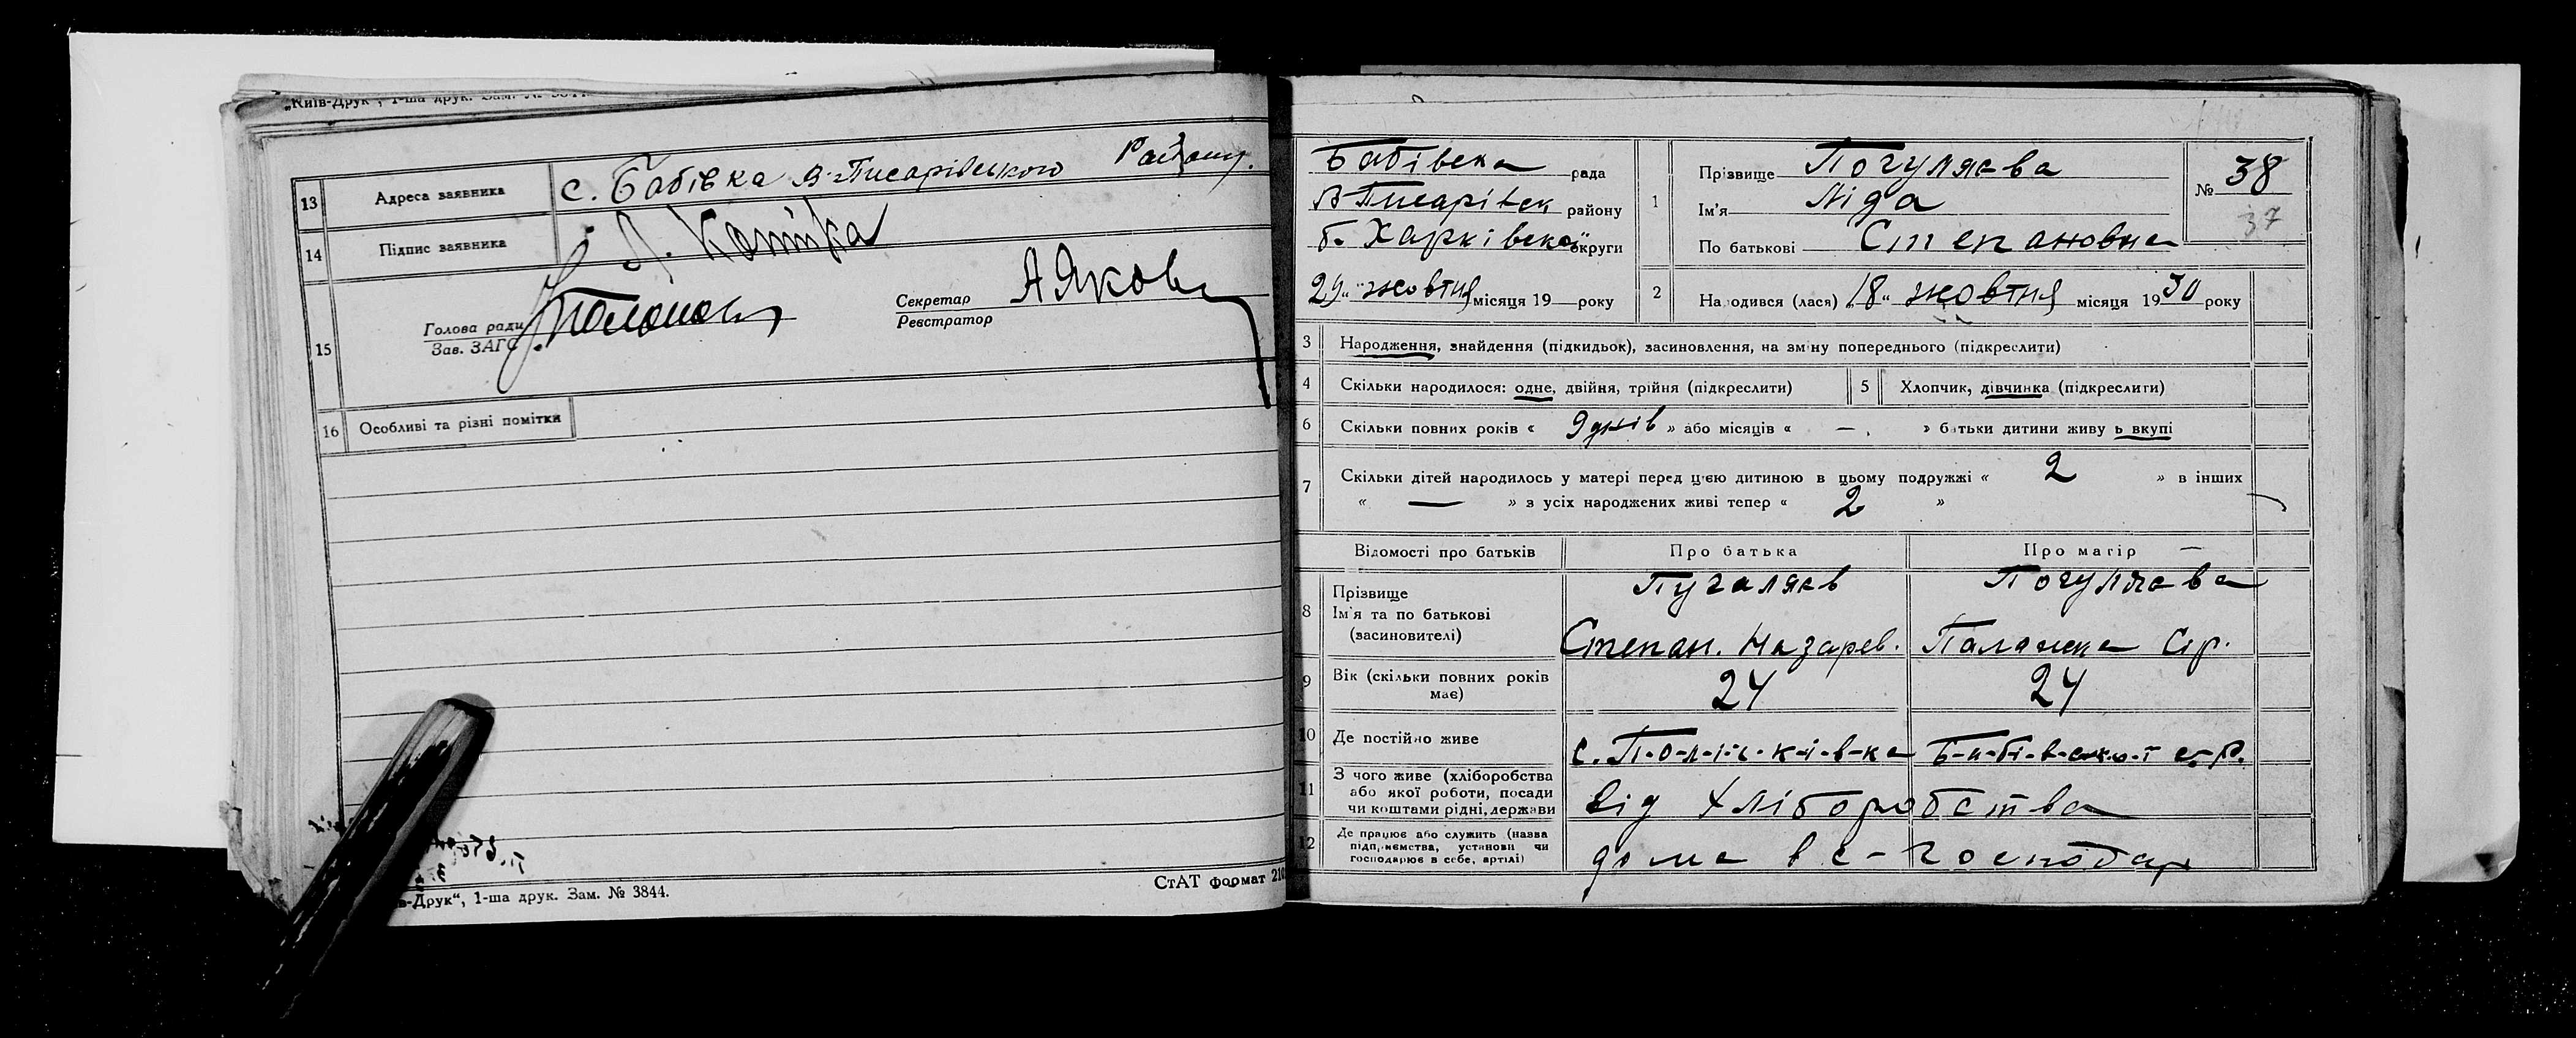 „Київ-Друк", 1-ша друк. Зам. №
13 Адреса заявника с. Бабівка В-Писарівського Району.
14 Підпис заявника
15 Голова ради
Зав. ЗАГС
Секретар А Яков
Реєстратор
16 Особливі та різні помітки
в-Друк", 1-ша друк. Зам. № 3844.
СтАТ формат 210
Бабівска рада
В Писарівск району
б. Харківської округи
29 „ жовтня місяця 19 року
1 Прізвище Погуляєва
Ім'я Ліда
По батькові Степановна
№ 38
37
2 Народився (лася) „18" жовтня місяця 1930 року
3 Народження, знайдення (підкидьок), засиновлення, на зміну попереднього (підкреслити)
4 Скільки народилося: одне, двійня, трійня (підкреслити)
5 Хлопчик, дівчинка (підкреслити)
6 Скільки повних років « 9 днів » або місяців « — » батьки дитини живуть вкупі
7 Скільки дітей народилось у матері перед цією дитиною в цьому подружжі « 2 » в інших
« — » з усіх народжених живі тепер « 2 »
Відомості про батьків Про батька Про матір
8 Прізвище
Ім'я та по батькові
(засиновителі)
Пугаляєв
Степан. Назарев.
Погуляєва
Палажка
9 Вік (скільки повних років має)
24
24
10 Де постійно живе с. Бабівської с. р.
11 З чого живе (хліборобства
або якої роботи, посади
чи коштами рідні, держави
від хліборобства
12 Де працює або служить (назва
підприємства, установи чи
господарює в себе, артілі)
дома в с-господар